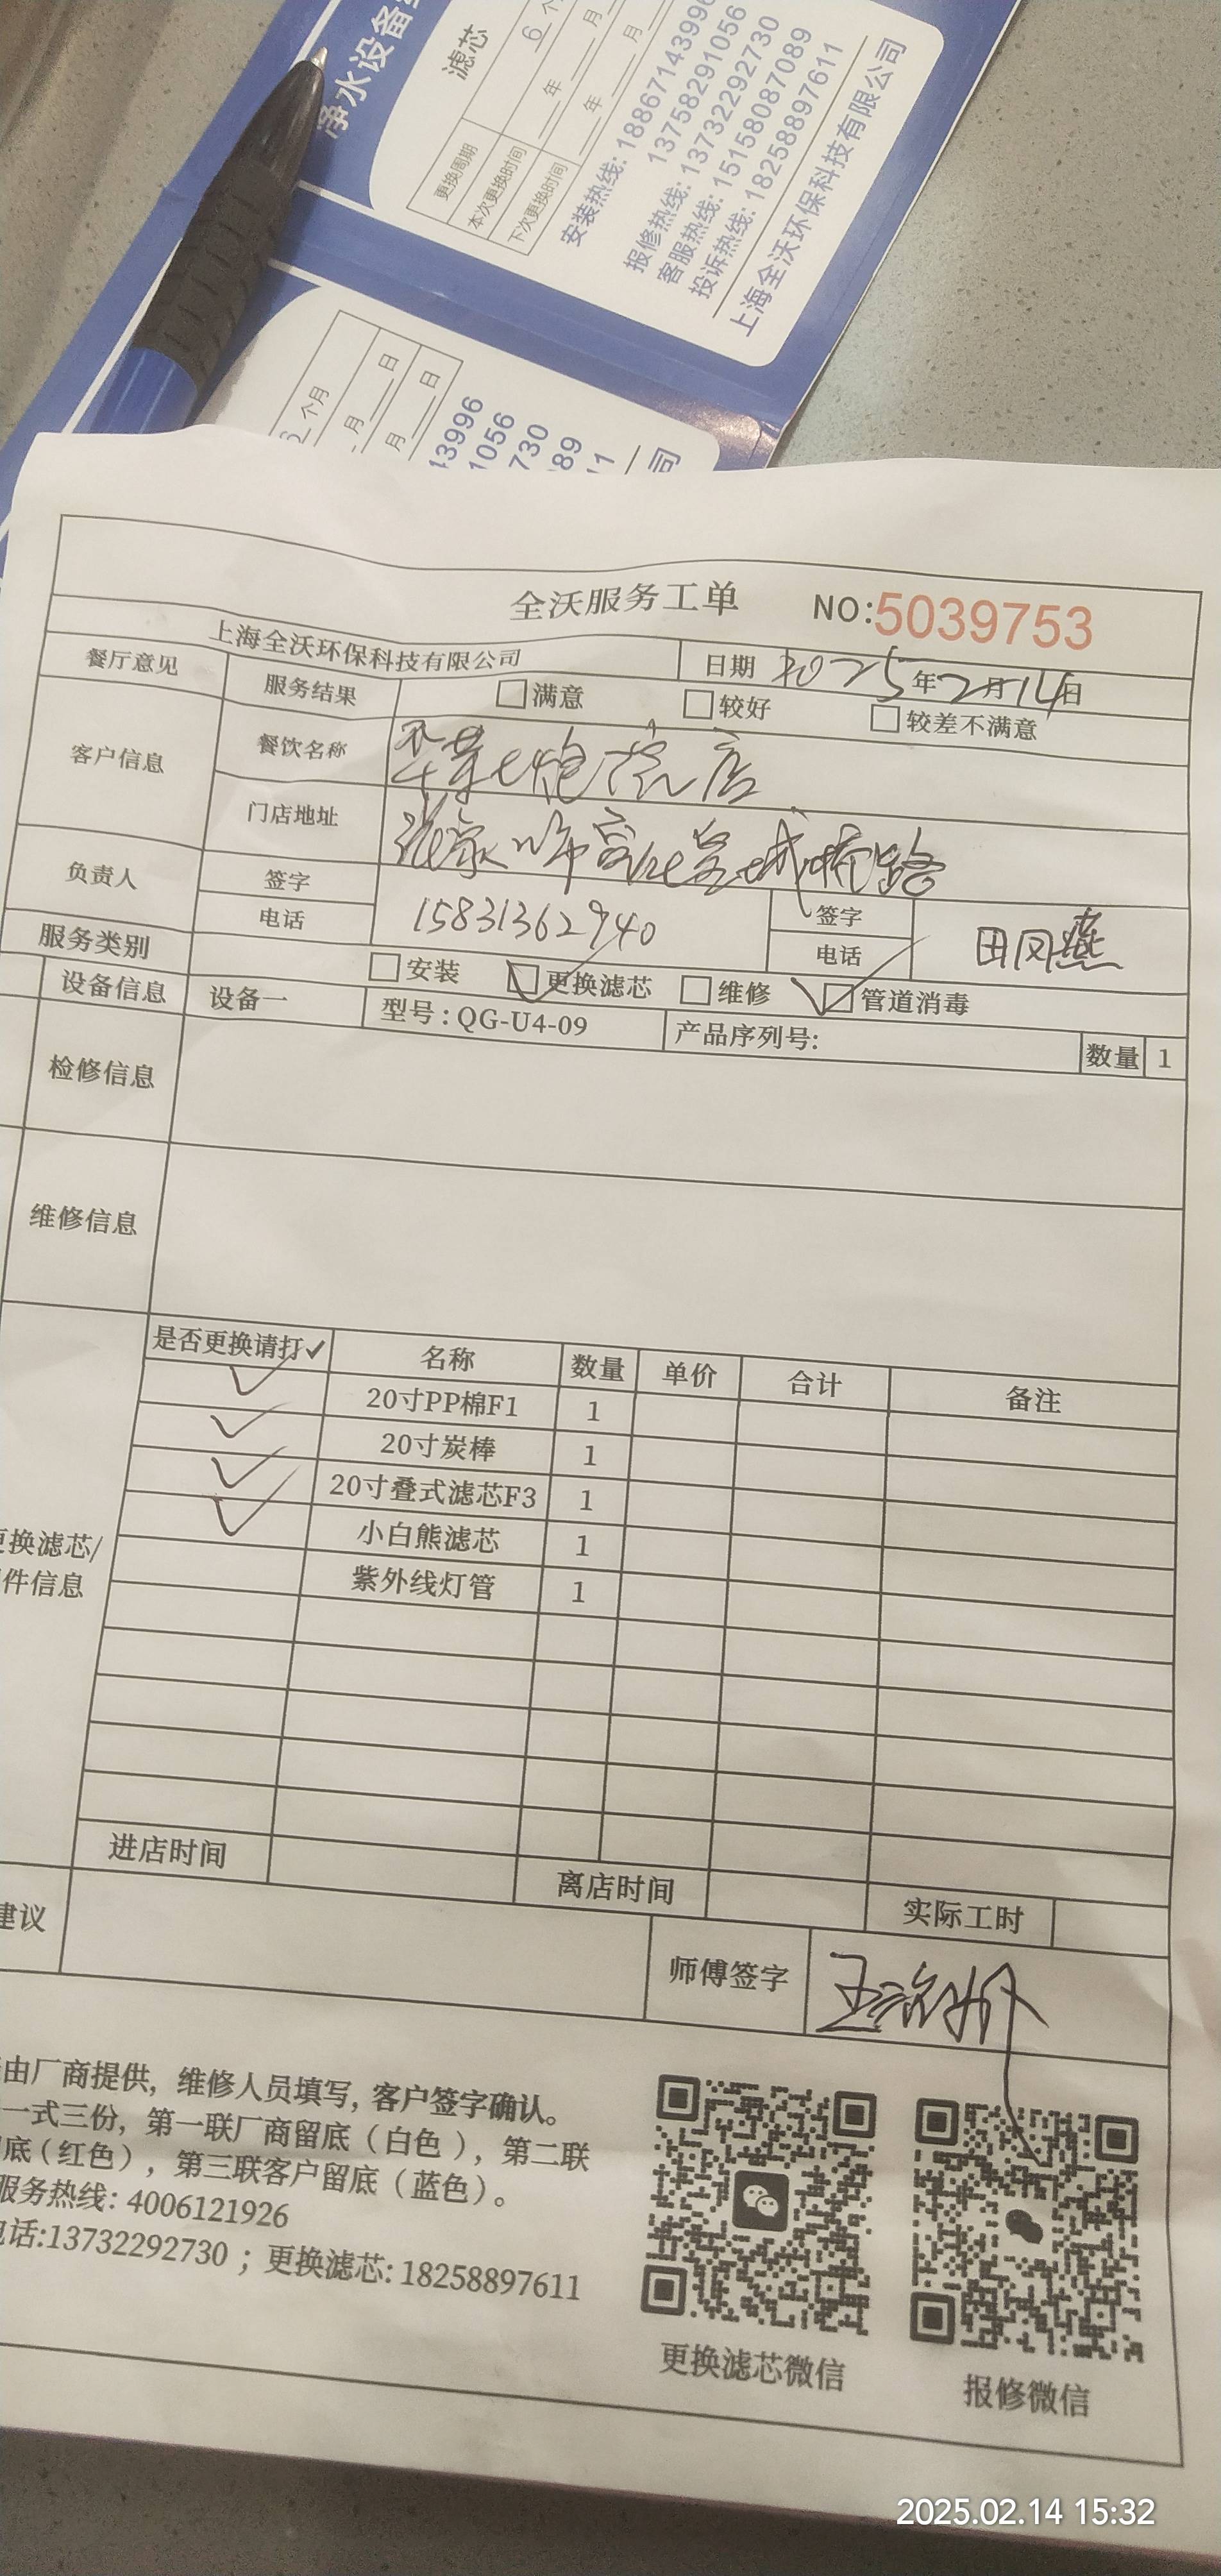 净水设备
滤芯
更换周期 6 个
本次更换时间 年 月
下次更换时间 年 月
安装热线: 18867143996
13758291056
报修热线: 13732292730
客服热线: 15158087089
投诉热线: 18258897611
上海全沃环保科技有限公司
个月
月 日
月 日
43996
1056
730
89
11
司
全沃服务工单 NO:5039753
上海全沃环保科技有限公司 日期 2025年2月14日
餐厅意见 服务结果 满意 较好 较差不满意
客户信息 餐饮名称 店
门店地址 张家 市宣化 城 路
负责人 签字 签字
电话 15831362940 电话 田凤燕
服务类别 安装 更换滤芯 维修 管道消毒
设备信息 设备一 型号:QG-U4-09 产品序列号: 数量 1
检修信息
维修信息
是否更换请打✓ 名称 数量 单价 合计 备注
✓ 20寸PP棉F1 1
✓ 20寸炭棒 1
✓ 20寸叠式滤芯F3 1
✓ 小白熊滤芯 1
紫外线灯管 1
更换滤芯/
件信息
进店时间 离店时间 实际工时
建议 师傅签字 王
由厂商提供, 维修人员填写, 客户签字确认。
一式三份, 第一联厂商留底(白色), 第二联
底(红色), 第三联客户留底(蓝色)。
服务热线: 4006121926
电话:13732292730 ; 更换滤芯: 18258897611
更换滤芯微信
报修微信
2025.02.14 15:32